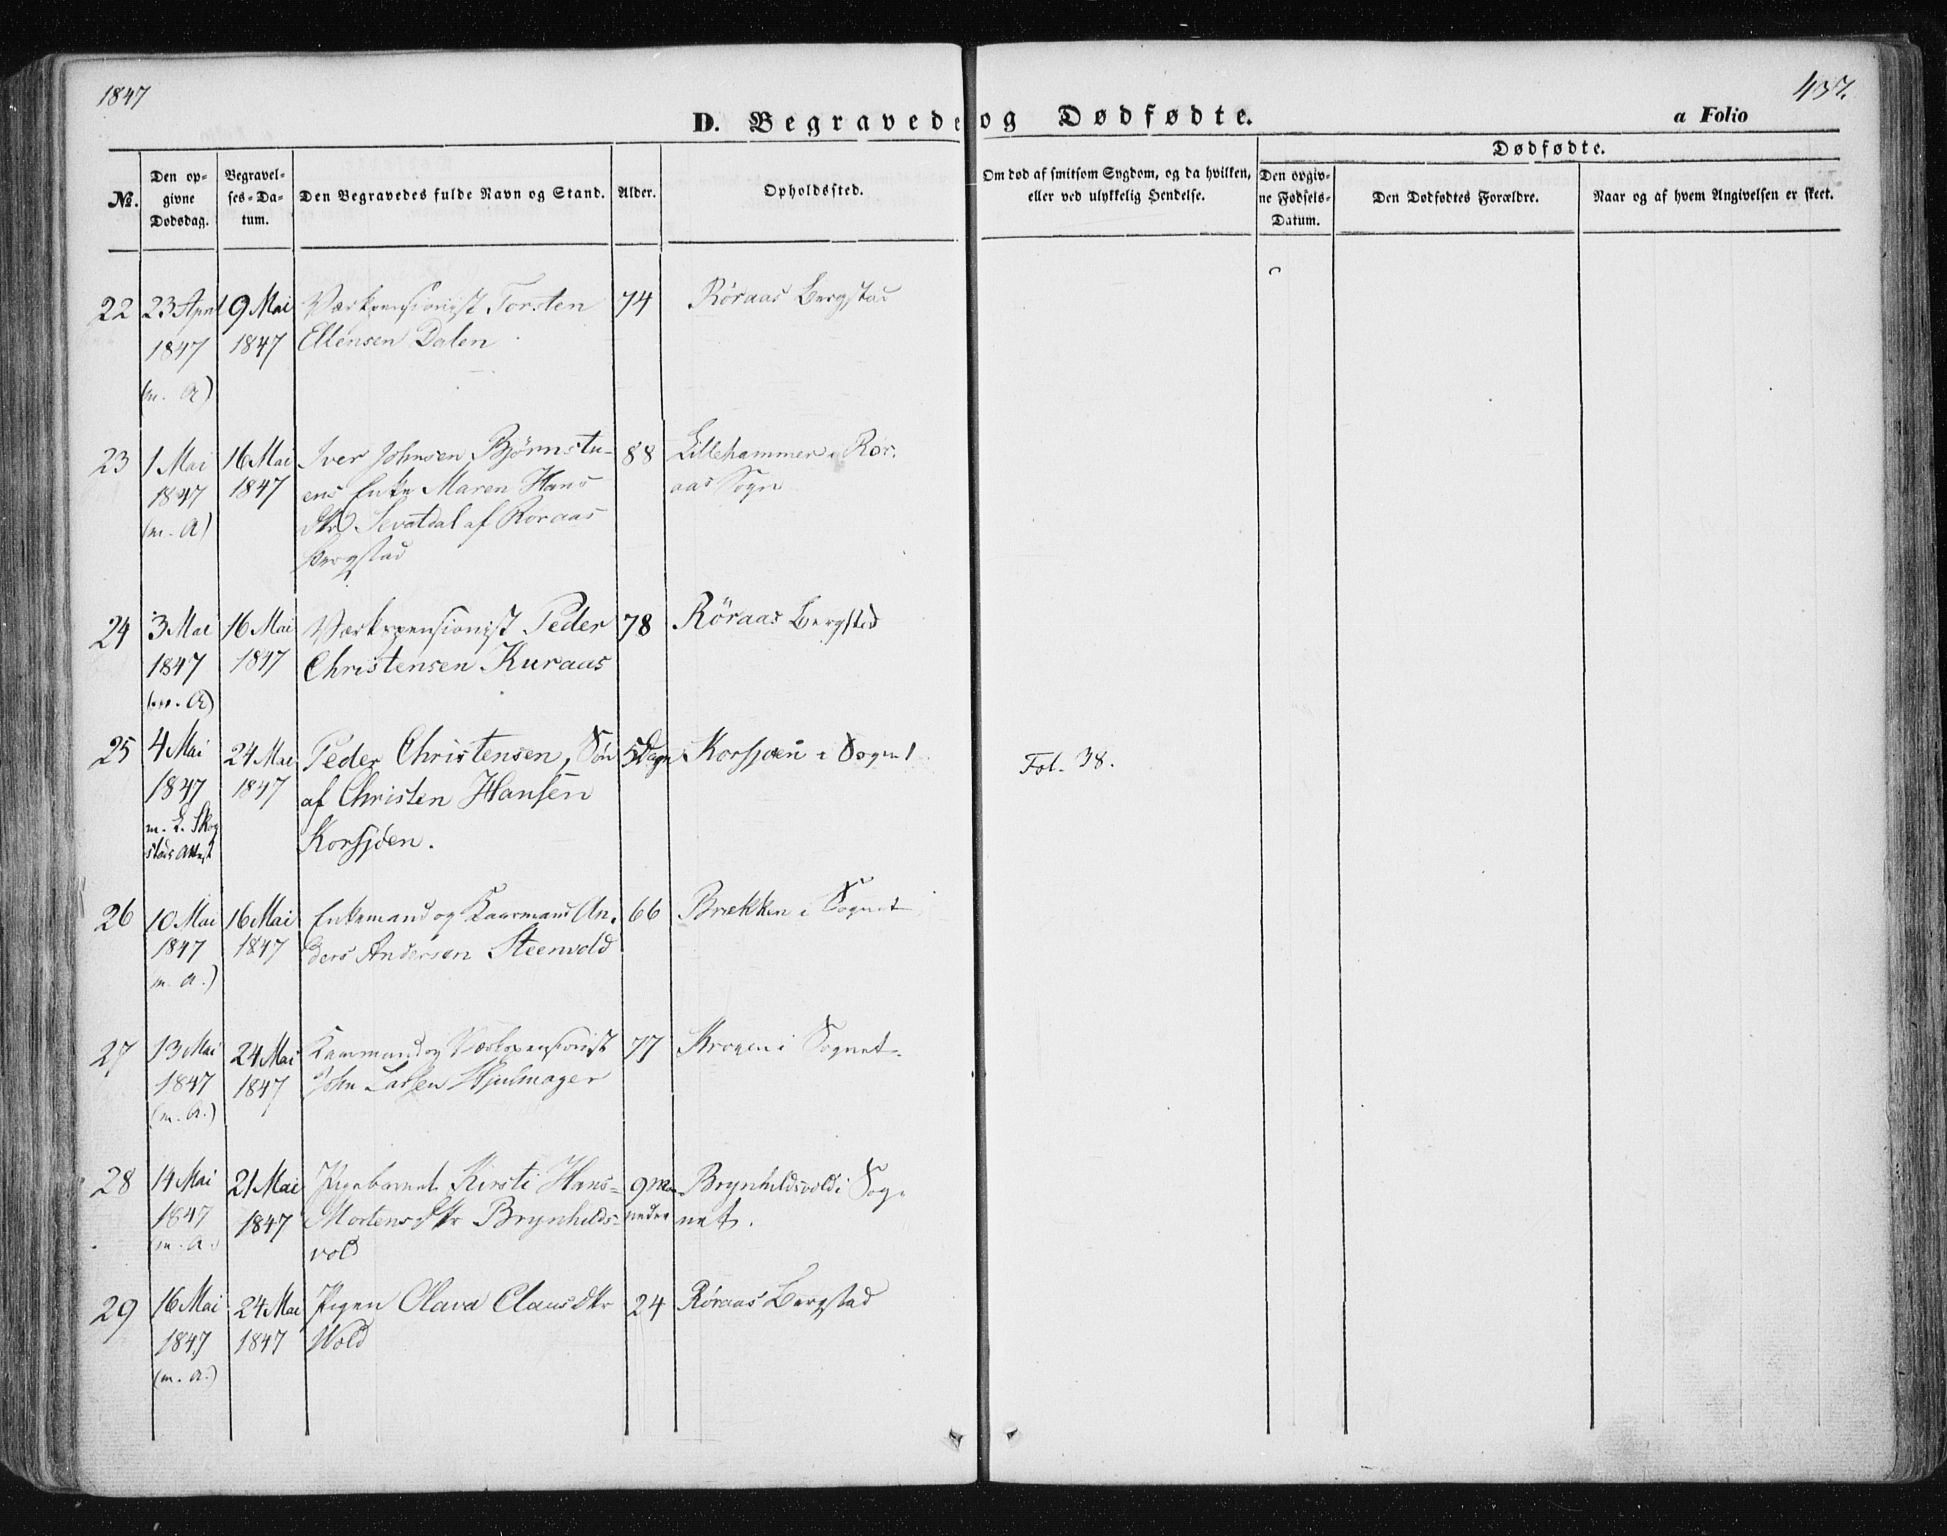 1847
437.
D. Begravede og Dødfødte.
a Folio
Dødfødte.
No.
Den op-
givne
Dødsdag.
Begravel-
ses-Da-
tum.
Den Begravedes fulde Navn og Stand.
Alder.
Opholdssted.
Om død af smitsom Sygdom, og da hvilken,
eller ved ulykkelig Hendelse.
Den opgiv-
ne Fødsels-
Datum.
Den Dødfødtes Forældre.
Naar og af hvem Angivelsen er skeet.
22 23 April 9 Mai Værkspensionist Torsten 74 Röraas Bergstad
1847 1847 Ellensen Dalen
(m. A)
23 1 Mai 16 Mai Iver Johnsen Björnstu- 88 Lillehammer i Rör-
1847 1847 ens Enke Maren Hans aas Sogn
(m. A) dtr Sevatdal af Röraas
Bergstad
24 3 Mai 16 Mai Værkspensionist Peder 78 Röraas Bergstad
1847 1847 Christensen Kuraas
(m. A)
25 4 Mai 24 Mai Peder Christensen, Sön 5 Dage Korssjöen i Sognet Fol. 38.
1847 1847 af Christen Hansen
m. E. Skog
stads Attest Korssjöen.
26 10 Mai 16 Mai Enkemand og Kaarmand An- 66 Brækken i Sognet
1847 1847 ders Andersen Steenvold
(m. A.)
27 13 Mai 24 Mai Kaarmand og Værkspensionist 77 Krogen i Sognet.
1847 1847 John Larsen Hjulmager
(m. A.)
28 14 Mai 21 Mai Pigebarnet Kirsti Hans- 9 Maa- Brynhildsvold i Sog-
1847 1847 Mortensdtr Brynhilds- neder net.
(m. A.) vold
29 16 Mai 24 Mai Pigen Olava Clausdtr 24 Röraas Bergstad
1847 1847 Wold
(m. A.)